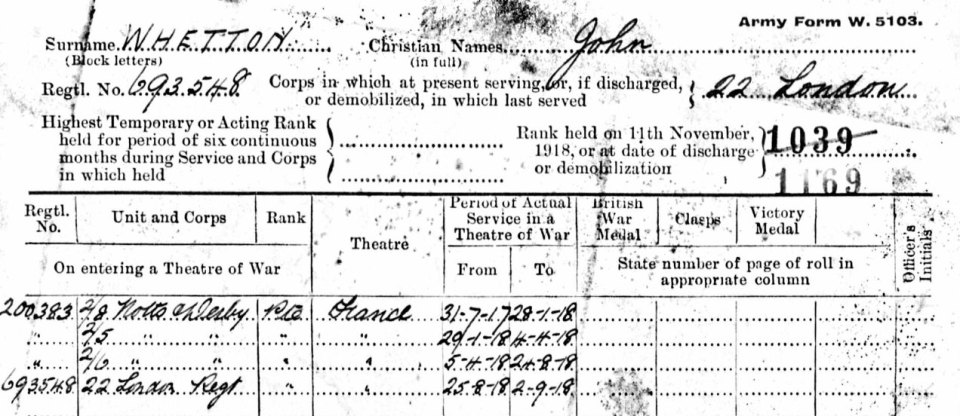 Army Form W. 5103.
Surname WHETTON Christian Names John
(Block letters) (in full)
Regtl. No. 693548 Corps in which at present serving, or, if discharged, or demobilized, in which last served 22 London
Highest Temporary or Acting Rank held for period of six continuous months during Service and Corps in which held
Rank held on 11th November, 1918, or at date of discharge or demobilization 1039
1169
Regtl. No. Unit and Corps Rank Theatre Period of Actual Service in a Theatre of War British War Medal Clasps Victory Medal Officer's Initials
On entering a Theatre of War From To State number of page of roll in appropriate column
200383 2/8 Notts & Derby Pte France 31-7-17 28-1-18
" 2/5 " " " " 29-1-18 4-4-18
" 2/6 " " " " 5-4-18 24-8-18
693548 22 London Regt " " 25-8-18 2-9-18